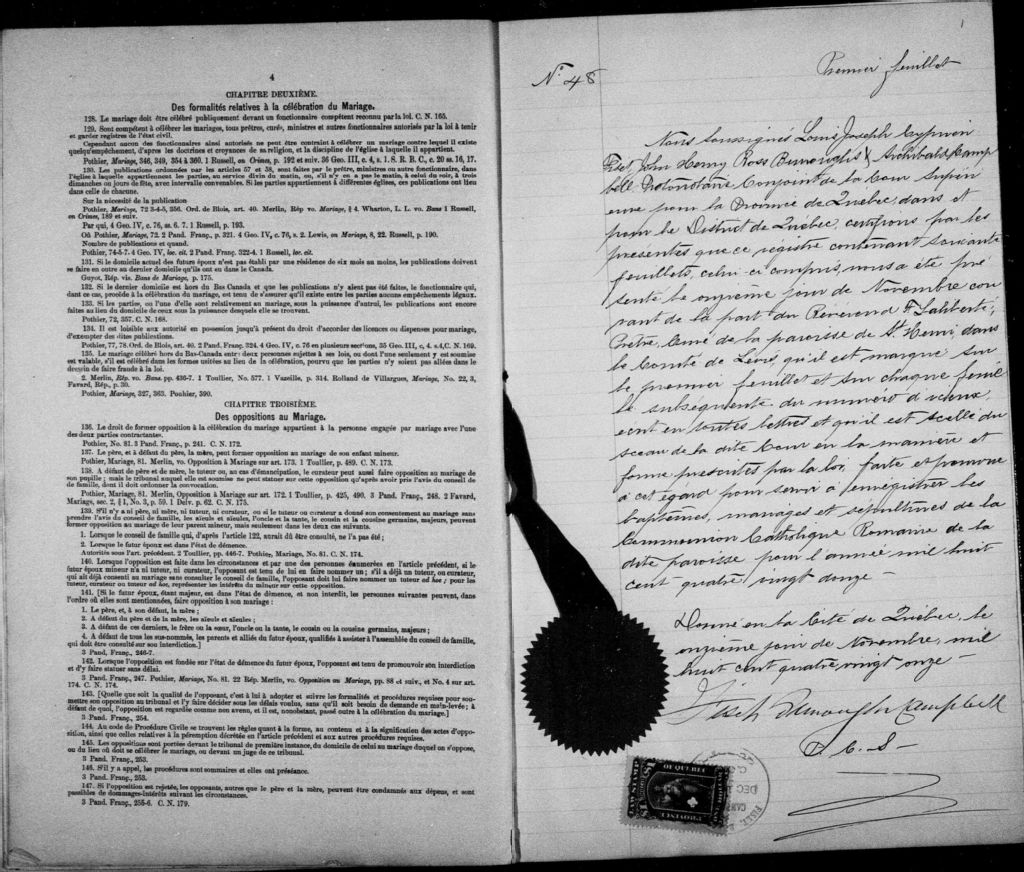 4
CHAPITRE DEUXIÈME.
Des formalités relatives à la célébration du Mariage.
128. Le mariage doit être célébré publiquement devant un fonctionnaire compétent reconnu par la loi. C. N. 165.
129. Sont compétent à célébrer les mariages, tous prêtres, curés, ministres et autres fonctionnaires autorisés par la loi à tenir
et garder registres de l'état civil.
Cependant aucun des fonctionnaires ainsi autorisés ne peut être contraint à célébrer un mariage contre lequel il existe
quelqu'empêchement, d'après les doctrines et croyances de sa religion, et la discipline de l'église à laquelle il appartient.
Pothier, Mariage, 346, 349, 354 à 360. 1 Russell, on Crimes, p. 192 et suiv. 35 Geo. III, c. 4, s. 1. S. R. B. C., c. 20 ss. 16, 17.
130. Les publications ordonnées par les articles 57 et 58, sont faites par le prêtre, ministre ou autre fonctionnaire, dans
l'église à laquelle appartiennent les parties, au service divin du matin, ou, s'il n'y en a pas le matin, à celui du soir, à trois
dimanches ou jours de fête, avec intervalle convenables. Si les parties appartiennent à différentes églises, ces publications ont lieu
dans celle de chacune.
Sur la nécessité de la publication
Pothier, Mariage, 72 3-4-5, 356. Ord. de Blois, art. 40. Merlin, Rép vo. Mariage, § 4. Wharton, L. L. vo. Bans 1 Russell,
on Crimes, 189 et suiv.
Par qui, 4 Geo. IV, c. 76, ss. 6. 7. 1 Russell, p. 193.
Où Pothier, Mariage, 72. 2 Pand. Franç., p. 321. 4 Geo. IV, c. 76, s. 2. Lewis, on Mariage, 8, 22. Russell, p. 190.
Nombre de publications et quand.
Pothier, 74-5-7. 4 Geo. IV, loc. cit. 2 Pand. Franç. 322-4. 1 Russell, loc. cit.
131. Si le domicile actuel des futurs époux n'est pas établi par une résidence de six mois au moins, les publications doivent
se faire en outre au dernier domicile qu'ils ont eu dans le Canada.
Guyot, Rép. vis. Bans de Mariage, p. 175.
132. Si le dernier domicile est hors du Bas Canada et que les publications n'y aient pas été faites, le fonctionnaire qui,
dans ce cas, procède à la célébration du mariage, est tenu de s'assurer qu'il existe entre les parties aucuns empêchements légaux.
133. Si les parties, ou l'une d'elle sont relativement au mariage, sous la puissance d'autrui, les publications sont encore
faites au lieu du domicile de ceux sous la puissance desquels elle se trouvent.
Pothier, 72, 357. C. N. 168.
134. Il est loisible aux autorité en possession jusqu'à présent du droit d'accorder des licences ou dispenses pour mariage,
d'exempter des dites publications.
Pothier, 77, 78. Ord. de Blois, art. 40. 2 Pand. Franç. 324. 4 Geo. IV, c. 76 en plusieurs sections, 35 Geo, III, c, 4. s.4, C. N. 169.
135. Le mariage célébré hors du Bas-Canada entre deux personnes sujettes à ses lois, ou dont l'une seulement y est soumise
est valable, s'il est célébré dans les formes usitées au lieu de la célébration, pourvu que les parties n'y soient pas allées dans le
dessein de faire fraude à la loi.
2. Merlin, Rép. vo. Bans. pp. 436-7. 1 Toullier, No. 577. 1 Vazeille, p. 314. Rolland de Villargues, Mariage, No. 22, 3,
Favard, Rép., p. 30.
Pothier, Mariage, 327, 363. Pouhier, 390.
CHAPITRE TROISIÈME.
Des oppositions au Mariage.
136. Le droit de former opposition à la célébration du mariage appartient à la personne engagée par mariage avec l'une
des deux parties contractantes.
Pothier, No. 81. 3 Pand. Franç., p. 241. C. N. 172.
137. Le père, et à défaut du père, la mère, peut former opposition au mariage de son enfant mineur.
Pothier, Mariage, 81. Merlin, vo. Opposition à Mariage sur art. 173. 1 Toullier, p. 489. C. N. 173.
138. A défaut de père et de mère, le tuteur ou, au cas d'émancipation, le curateur peut aussi faire opposition au mariage de
son pupille ; mais le tribunal auquel elle est soumise ne peut statuer sur cette opposition qu'après avoir pris l'avis du conseil de
famille, dont il doit ordonner la convocation.
Pothier, Mariage, 81. Merlin, Opposition à Mariage sur art. 172. 1 Toullier, p. 425, 490. 3 Pand. Franç., 248. 2 Favard,
Mariage, sec. 2, § 1, No. 3, p. 59. 1 Delv. p. 62. C. N. 175.
139. S'il n'y a ni père, ni mère, ni tuteur, ni curateur, ou si le tuteur ou curateur a donné son consentement au mariage sans
prendre l'avis du conseil de famille, les aïeuls et aïeules, l'oncle et la tante, le cousin et la cousine germains, majeurs, peuvent
former opposition au mariage de leur parent mineur, mais seulement dans les deux cas suivants :
1. Lorsque le conseil de famille qui, d'après l'article 122, aurait dû être consulté, ne l'a pas été ;
2. Lorsque le futur époux est dans l'état de démence.
Autorités sous l'art. précédent. 2 Toullier, pp. 446-7. Pothier, Mariage, No. 81. C. N. 174.
140. Lorsque l'opposition est faite dans les circonstances et par une des personnes énumérées en l'article précédent, si le
futur époux mineur n'a ni tuteur, ni curateur, l'opposant est tenu de lui en faire nommer un ; s'il a déjà un tuteur, ou curateur,
qui ait déjà consenti au mariage sans consulter le conseil de famille, l'opposant doit lui faire nommer un tuteur ad hoc ; pour les
tuteur, curateur ou tuteur ad hoc, représenter les intérêts du mineur sur cette opposition.
141. [Si le futur époux, étant majeur, est dans l'état de démence, et non interdit, les personnes suivantes peuvent, dans
l'ordre où elles sont mentionnées, faire opposition à son mariage :
1. Le père, et, à son défaut, la mère ;
2. A défaut du père et de la mère, les aïeuls et aïeules ;
3. A défaut de ces derniers, le frère ou la sœur, l'oncle ou la tante, le cousin ou la cousine germains, majeurs ;
4. A défaut de tous les sus-nommés, les parents et alliés du futur époux, qualifiés à assister à l'assemblée du conseil de famille,
qui doit être consulté sur son interdiction.]
3 Pand. Franç., 246-7.
142. Lorsque l'opposition est fondée sur l'état de démence du futur époux, l'opposant est tenu de promouvoir son interdiction
et d'y faire statuer sans délai.
3 Pand. Franç., 247. Pothier, Mariage, No. 81. 22 Rép. Merlin, vo. Opposition au Mariage, pp. 88 et suiv., et No. 4 sur art.
174. C. N. 174.
143. [Quelle que soit la qualité de l'opposant, c'est à lui à adopter et suivre les formalités et procédures requises pour sou-
mettre son opposition au tribunal et l'y faire décider sous les délais voulus, sans qu'il soit besoin de demande en main-levée ; à
défaut de quoi, l'opposition est regardée comme non avenu, et il est, nonobstant, passé outre à la célébration du mariage.]
3 Pand. Franç., 254.
144. Au code de Procédure Civile se trouvent les règles quant à la forme, au contenu et à la signification des actes d'oppo-
sition, ainsi que celles relatives à la péremption décrétée en l'article précédent et aux autres procédures requises.
145. Les oppositions sont portées devant le tribunal de première instance, du domicile de celui au mariage duquel on s'oppose,
ou du lieu où doit se célébrer le mariage, ou devant un juge de ce tribunal.
3 Pand. Franç., 253.
146. S'il y a appel, les procédures sont sommaires et elles ont préséance.
3 Pand. Franç., 253.
147. Si l'opposition est rejetée, les opposants, autres que le père et la mère, peuvent être condamnés aux dépens, et sont
passibles de dommages-intérêts suivant les circonstances.
3 Pand. Franç., 255-6. C. N. 179.
1
Nº 48
Premier feuillet
Nous Soussignés Louis Joseph Cyprien
Fiset John Henry Ross Burroughs & Archibald Camp
bell Protonotaire Conjoint de la Cour Supéri
eure pour la Province de Québec, dans et
pour le District de Québec, certifions par les
présentes que ce registre contenant soixante
feuillets, celui-ci compris, nous a été pré
senté le onzième jour de Novembre cou
rant de la part du Révérend F. Laliberté,
Prêtre, Curé de la paroisse de St Henri, dans
le Comté de Lévis, qu'il est marqué sur
le premier feuillet et sur chaque feuil
let subséquente du numéro d'icieux,
écrit en toutes lettres et qu'il est scellé du
sceau de la dite Cour en la manière et
forme prescrites par la loi, faite et pourvue
à cet égard pour servir à enregistrer les
baptêmes, mariages et sépultures de la
Communion Catholique Romaine de la
dite paroisse pour l'année mil huit
cent quatre vingt douze -
Donné en la Cité de Québec, le
onzième jour de Novembre, mil
huit cent quatre vingt onze -
Fiset Burroughs Campbell
P. C. S -
LAW STAMP
PROVINCE
OF QUEBEC
DEC